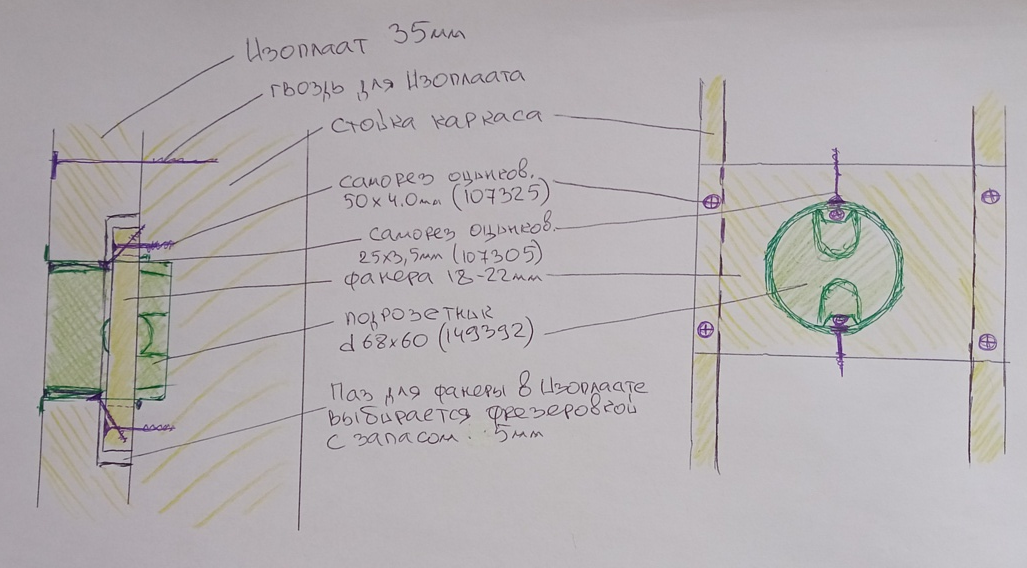 Изоплаат 35мм
гвоздь для Изоплаата
стойка каркаса
саморез оцинков.
50х4.0мм (107325)
саморез оцинков.
25х3,5мм (107305)
фанера 18-22мм
подрозетник
d 68х60 (149392)
Паз для фанеры в Изоплаате
выбирается фрезеровкой
с запасом 5мм